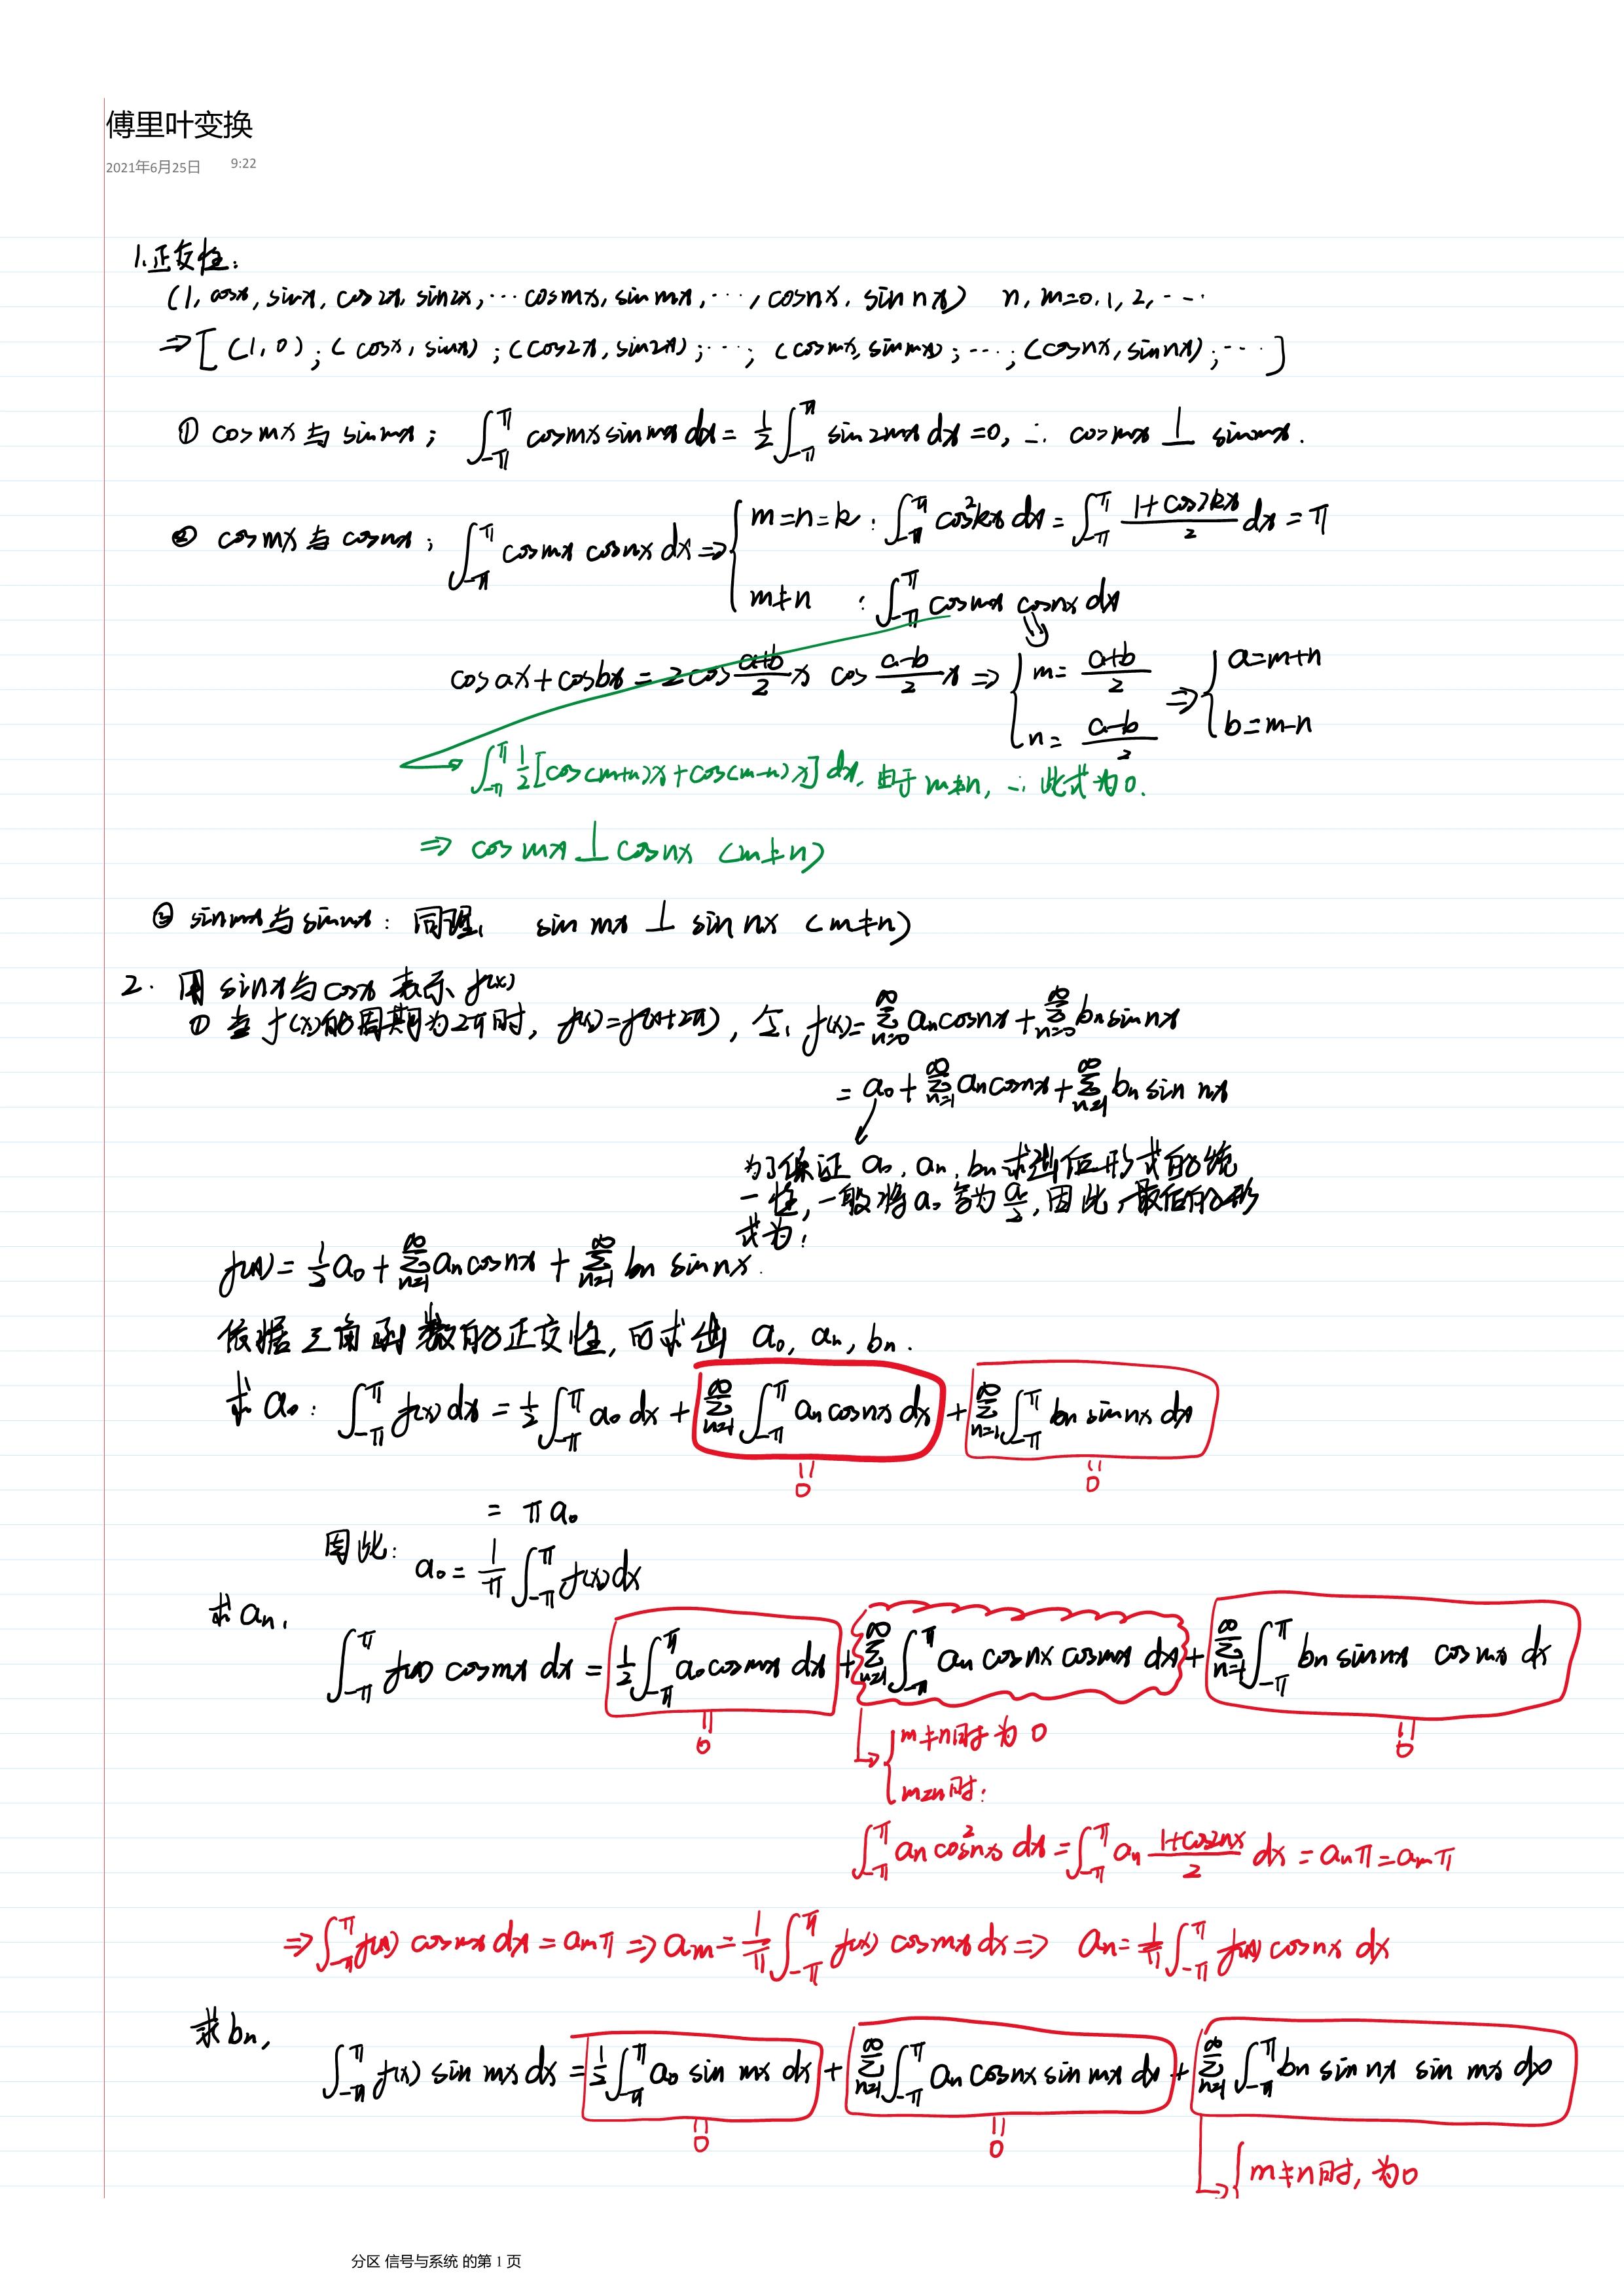 傅里叶变换
2021年6月25日 9:22
1.正交性:
(1, cosx, sinx, cos2x, sin2x, ⋯ cosmx, sinmx, ⋯, cosnx, sinnx) n, m=0,1,2,⋯
⇒[(1,0);(cosx, sinx);(cos2x, sin2x);⋯;(cosmx, sinmx);⋯;(cosnx, sinnx);⋯]
① cosmx与sinmx; ∫_{-π}^{π} cosmx sinmx dx = 1/2 ∫_{-π}^{π} sin2mx dx =0, ∴ cosmx ⊥ sinmx.
② cosmx与cosnx; ∫_{-π}^{π} cosmx cosnx dx ⇒ { m=n=k: ∫_{-π}^{π} cos²kx dx = ∫_{-π}^{π} (1+cos2kx)/2 dx = π
m≠n : ∫_{-π}^{π} cosmx cosnx dx
cosax+cosbx = 2cos (a+b)/2 x cos (a-b)/2 x ⇒ { m=(a+b)/2 n=(a-b)/2 ⇒ { a=m+n b=m-n
∫_{-π}^{π} 1/2 [cos(m+n)x+cos(m-n)x] dx, 由于m≠n, ∴ 此式为0.
⇒ cosmx ⊥ cosnx (m≠n)
③ sinmx与sinnx: 同理, sin mx ⊥ sin nx (m≠n)
2. 用sinx与cosx表示f(x)
① 当f(x)的周期为2π时, f(x)=f(x+2π), 令: f(x)=∑_{n=0}^{∞} an cosnx + ∑_{n=0}^{∞} bn sinnx
= a₀ + ∑_{n=1}^{∞} an cosnx + ∑_{n=1}^{∞} bn sin nx
为了保证 a₀, an, bn求出后形式的统
一性, 一般将a₀写为a₀/2, 因此, 最后的形
式为:
f(x) = 1/2 a₀ + ∑_{n=1}^{∞} an cosnx + ∑_{n=1}^{∞} bn sin nx.
依据三角函数的正交性, 可求出 a₀, an, bn.
求a₀: ∫_{-π}^{π} f(x) dx = 1/2 ∫_{-π}^{π} a₀ dx + ∑_{n=1}^{∞} ∫_{-π}^{π} an cosnx dx + ∑_{n=1}^{∞} ∫_{-π}^{π} bn sinnx dx
0 0
= π a₀
因此: a₀ = 1/π ∫_{-π}^{π} f(x) dx
求an,
∫_{-π}^{π} f(x) cosmx dx = 1/2 ∫_{-π}^{π} a₀ cosmx dx + ∑_{n=1}^{∞} ∫_{-π}^{π} an cosnx cosmx dx + ∑_{n=1}^{∞} ∫_{-π}^{π} bn sinnx cosmx dx
0 0
m≠n时为0
m=n时:
∫_{-π}^{π} an cos²nx dx = ∫_{-π}^{π} an (1+cos2nx)/2 dx = anπ = amπ
⇒ ∫_{-π}^{π} f(x) cosmx dx = amπ ⇒ am = 1/π ∫_{-π}^{π} f(x) cosmx dx ⇒ an = 1/π ∫_{-π}^{π} f(x) cosnx dx
求bn,
∫_{-π}^{π} f(x) sin mx dx = 1/2 ∫_{-π}^{π} a₀ sin mx dx + ∑_{n=1}^{∞} ∫_{-π}^{π} an cosnx sin mx dx + ∑_{n=1}^{∞} ∫_{-π}^{π} bn sin nx sin mx dx
0 0
m≠n时, 为0
分区 信号与系统 的第 1 页